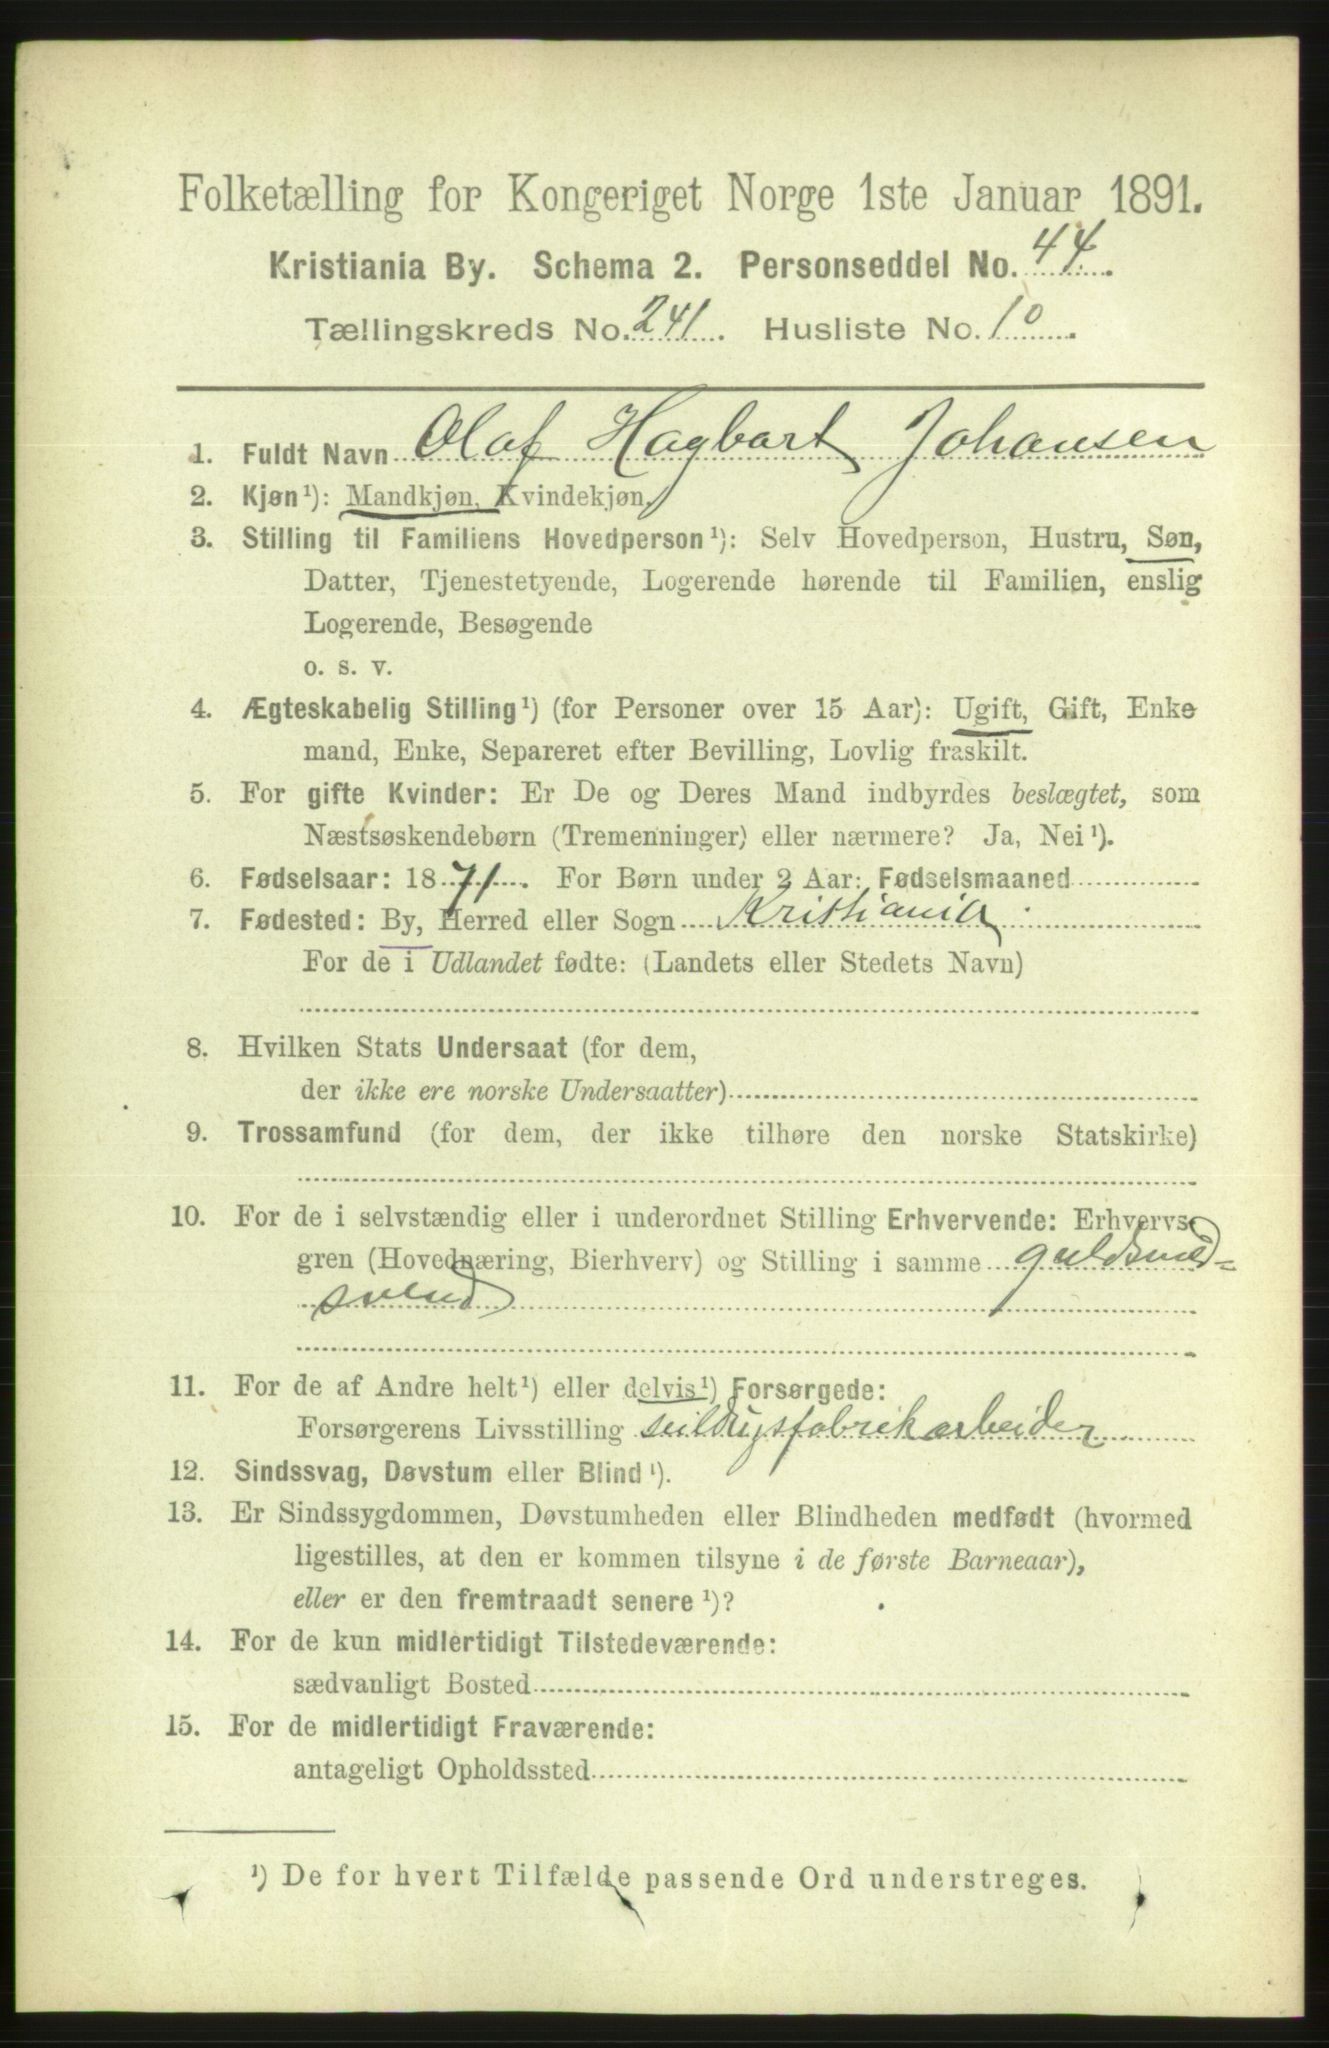 Folketælling for Kongeriget Norge 1ste Januar 1891.
Kristiania By. Schema 2. Personseddel No. 44.
Tællingskreds No. 241. Husliste No. 10.
1. Fuldt Navn Olaf Hagbart Johansen
2. Kjøn¹): Mandkjøn, Kvindekjøn,
3. Stilling til Familiens Hovedperson¹): Selv Hovedperson, Hustru, Søn,
Datter, Tjenestetyende, Logerende hørende til Familien, enslig
Logerende, Besøgende
o. s. v.
4. Ægteskabelig Stilling¹) (for Personer over 15 Aar): Ugift, Gift, Enke
mand, Enke, Separeret efter Bevilling, Lovlig fraskilt.
5. For gifte Kvinder: Er De og Deres Mand indbyrdes beslægtet, som
Næstsøskendebørn (Tremenninger) eller nærmere? Ja, Nei¹).
6. Fødselsaar: 1871. For Børn under 2 Aar: Fødselsmaaned
7. Fødested: By, Herred eller Sogn Kristiania
For de i Udlandet fødte: (Landets eller Stedets Navn)
8. Hvilken Stats Undersaat (for dem,
der ikke ere norske Undersaatter)
9. Trossamfund (for dem, der ikke tilhøre den norske Statskirke)
10. For de i selvstændig eller i underordnet Stilling Erhvervende: Erhvervs-
gren (Hovednæring, Bierhverv) og Stilling i samme guldsmed=
svend
11. For de af Andre helt¹) eller delvis¹) Forsørgede:
Forsørgerens Livsstilling seildugsfabrikarbeider
12. Sindssvag, Døvstum eller Blind¹).
13. Er Sindssygdommen, Døvstumheden eller Blindheden medfødt (hvormed
ligestilles, at den er kommen tilsyne i de første Barneaar),
eller er den fremtraadt senere¹)?
14. For de kun midlertidigt Tilstedeværende:
sædvanligt Bosted
15. For de midlertidigt Fraværende:
antageligt Opholdssted
¹) De for hvert Tilfælde passende Ord understreges.